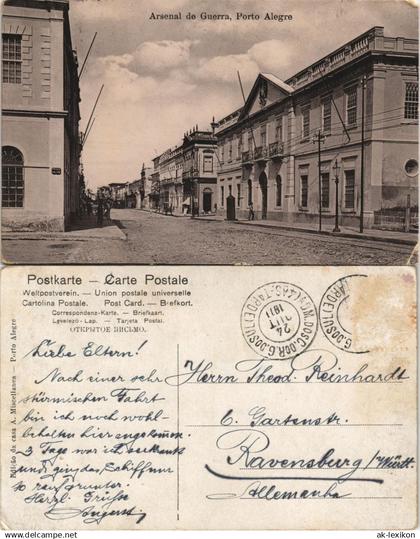 Arsenal de Guerra, Porto Alegre
Postkarte — Carte Postale
Weltpostverein. — Union postale universelle
Cartolina Postale. Post Card. — Briefkort.
Correspondenz-Karte. — Briefkaart.
Levelező-Lap. — Tarjeta Postal.
ОТКРЫТОЕ ПИСЬМО.
Edição da casa A. Miscellanea — Porto Alegre
Liebe Eltern!
Nach einer sehr
stürmischen Fahrt
bin ich noch wohl-
behalten hier angekomm.
3 Tage war ich seekrank
und ging das Schiff nur
so rauf runter.
Herzl. Grüsse
August
24
VII
1911
Herrn Theod. Reinhardt
6. Gartenstr.
Ravensburg / Württ.
Allemanha
ak-lexikon.de